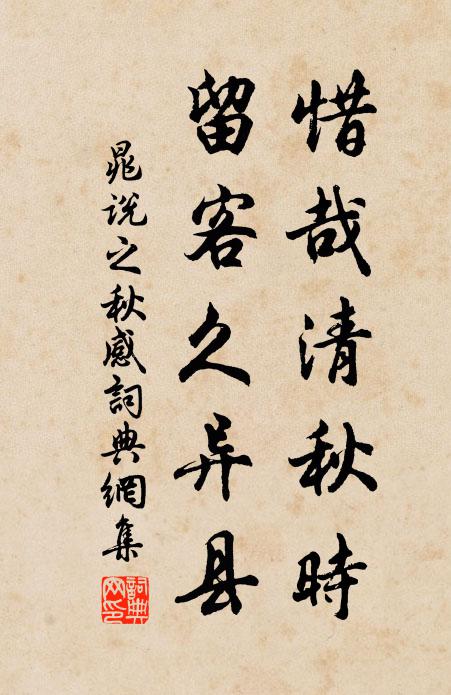 惜哉清秋時
留客久异县
晁说之秋感詞典網集
詞典
网印